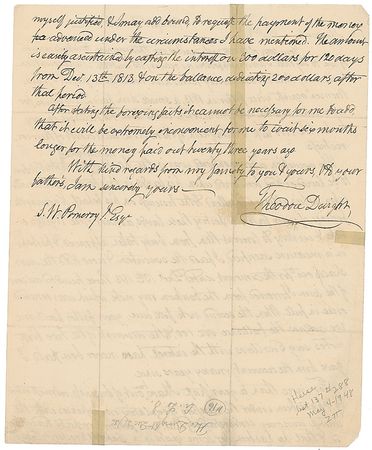 myself justified & I may add bound, to require the payment of the money
so advanced under the circumstances I have mentioned. The amount
is easily ascertained by casting the interest on 300 dollars for 120 days
from Dec. 13th 1813, & on the ballance, deducting 200 dollars, after
that period.
After stating the foregoing facts it cannot be necessary for me to add,
that it will be extremely inconvenient for me to wait six months
longer for the money paid out twenty three years ago
With kind regards from my family to you & yours, & your
father's, I am sincerely yours—
Theodore Dwight,
S. W. Pomeroy Jr. Esqr.
List 137 # 288
May 4-1948